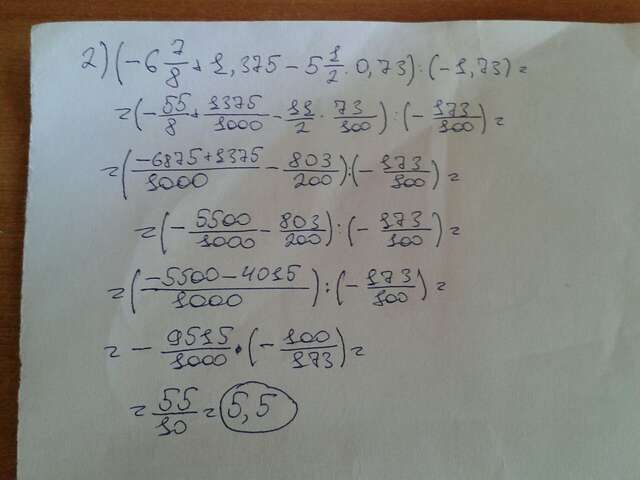 2) (-6 7/8 + 1,375 - 5 1/2 · 0,73) : (-1,73) =
= (-55/8 + 1375/1000 - 11/2 · 73/100) : (-173/100) =
= ((-6875+1375)/1000 - 803/200) : (-173/100) =
= (-5500/1000 - 803/200) : (-173/100) =
= ((-5500-4015)/1000) : (-173/100) =
= - 9515/1000 · (-100/173) =
= 55/10 = 5,5